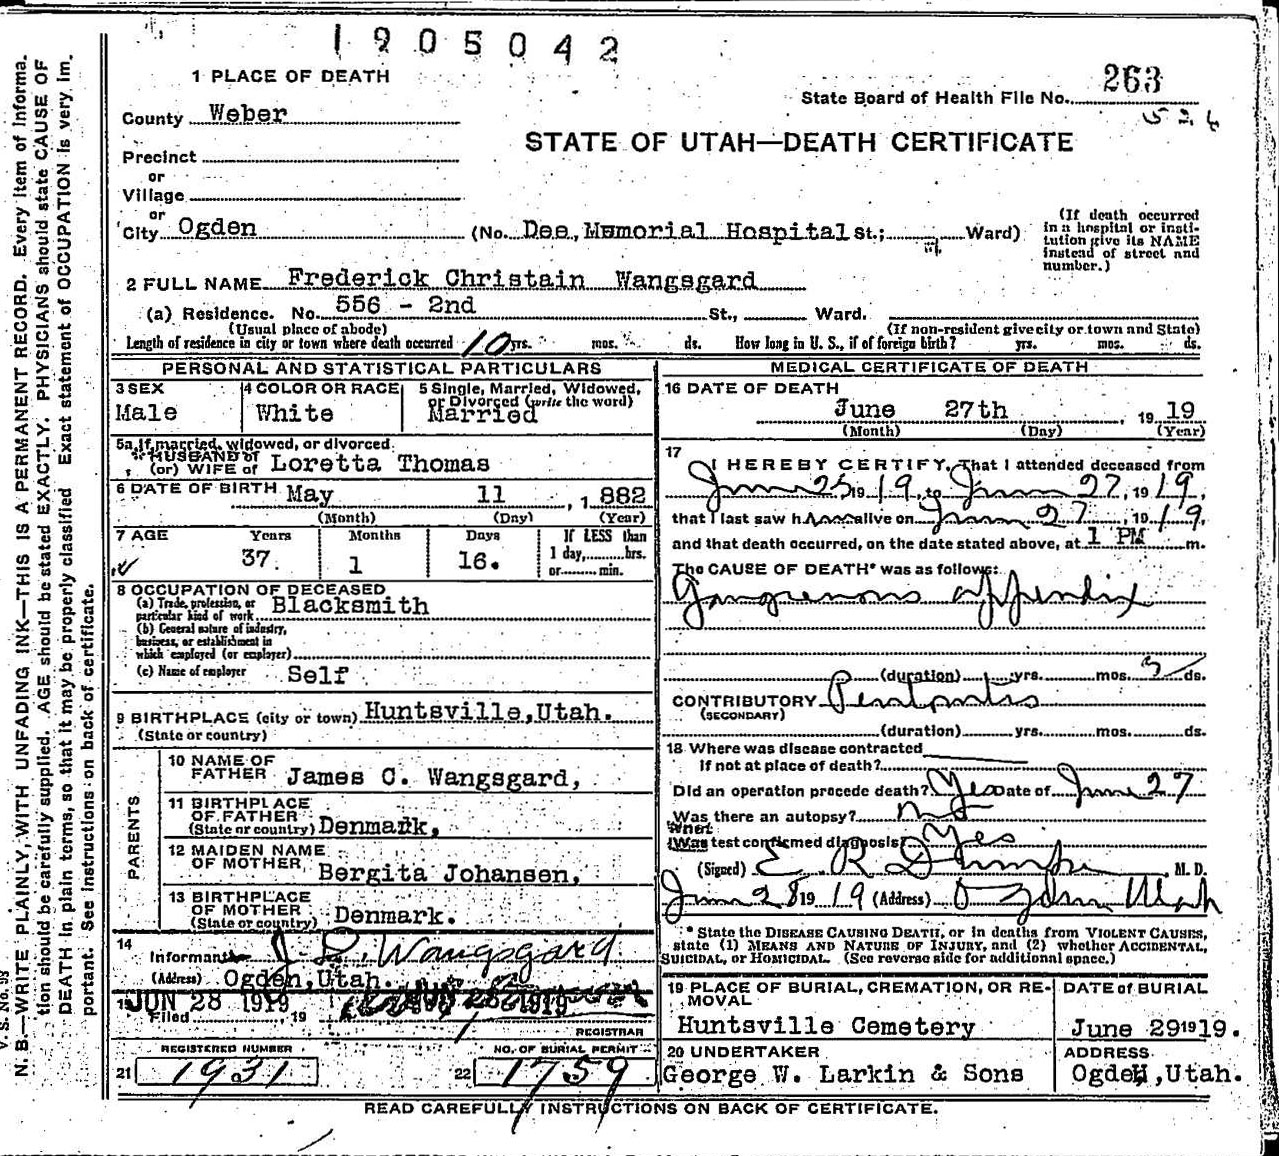 1905042
1 PLACE OF DEATH
263
State Board of Health File No.
County Weber
STATE OF UTAH—DEATH CERTIFICATE
Precinct
or
Village
or
City Ogden (No. Dee, Memorial Hospital St.; Ward)
(If death occurred in a hospital or insti-
tution give its NAME
instead of street and
number.)
2 FULL NAME Frederick Christain Wangsgard
(a) Residence. No. 556 - 2nd St., Ward.
(Usual place of abode) (If non-resident give city or town and State)
Length of residence in city or town where death occurred 10 yrs. mos. ds. How long in U. S., if of foreign birth? yrs. mos. ds.
PERSONAL AND STATISTICAL PARTICULARS
3 SEX 4 COLOR OR RACE 5 Single, Married, Widowed,
or Divorced (write the word)
Male White Married
5a If married, widowed, or divorced
HUSBAND of
(or) WIFE of Loretta Thomas
6 DATE OF BIRTH May 11, 1882
(Month) (Day) (Year)
7 AGE Years Months Days If LESS than
37. 1 16. 1 day, hrs.
or min.
8 OCCUPATION OF DECEASED
(a) Trade, profession, or
particular kind of work Blacksmith
(b) General nature of industry,
business, or establishment in
which employed (or employer)
(c) Name of employer Self
9 BIRTHPLACE (city or town) Huntsville, Utah.
(State or country)
PARENTS
10 NAME OF
FATHER James C. Wangsgard,
11 BIRTHPLACE
OF FATHER
(State or country) Denmark,
12 MAIDEN NAME
OF MOTHER Bergita Johansen,
13 BIRTHPLACE
OF MOTHER
(State or country) Denmark.
14
Informant Wangsgard
(Address) Ogden, Utah.
15 JUN 28 1919
Filed , 19
REGISTRAR
REGISTERED NUMBER NO. OF BURIAL PERMIT
21 1931 22 1759
MEDICAL CERTIFICATE OF DEATH
16 DATE OF DEATH
June 27th, 1919
(Month) (Day) (Year)
17
I HEREBY CERTIFY, That I attended deceased from
June 25 1919, to June 27, 1919,
that I last saw him alive on June 27, 1919,
and that death occurred, on the date stated above, at 1 PM m.
The CAUSE OF DEATH* was as follows:
Gangrenous appendix
(duration) yrs. mos. ds.
CONTRIBUTORY Peritonitis
(SECONDARY)
(duration) yrs. mos. ds.
18 Where was disease contracted
If not at place of death?
Did an operation precede death? Yes Date of June 27
Was there an autopsy? no
What
test confirmed diagnosis? Yes
(Signed) E. R. M. D.
June 28 1919 (Address) Ogden Utah
* State the DISEASE CAUSING DEATH, or in deaths from VIOLENT CAUSES,
state (1) MEANS AND NATURE OF INJURY, and (2) whether ACCIDENTAL,
SUICIDAL, or HOMICIDAL. (See reverse side for additional space.)
19 PLACE OF BURIAL, CREMATION, OR RE-
MOVAL DATE of BURIAL
Huntsville Cemetery June 29 1919.
20 UNDERTAKER ADDRESS
George W. Larkin & Sons Ogden, Utah.
READ CAREFULLY INSTRUCTIONS ON BACK OF CERTIFICATE.
V. S. No. 98
N. B.—WRITE PLAINLY, WITH UNFADING INK—THIS IS A PERMANENT RECORD. Every item of informa-
tion should be carefully supplied. AGE should be stated EXACTLY. PHYSICIANS should state CAUSE OF
DEATH in plain terms, so that it may be properly classified. Exact statement of OCCUPATION is very im-
portant. See instructions on back of certificate.